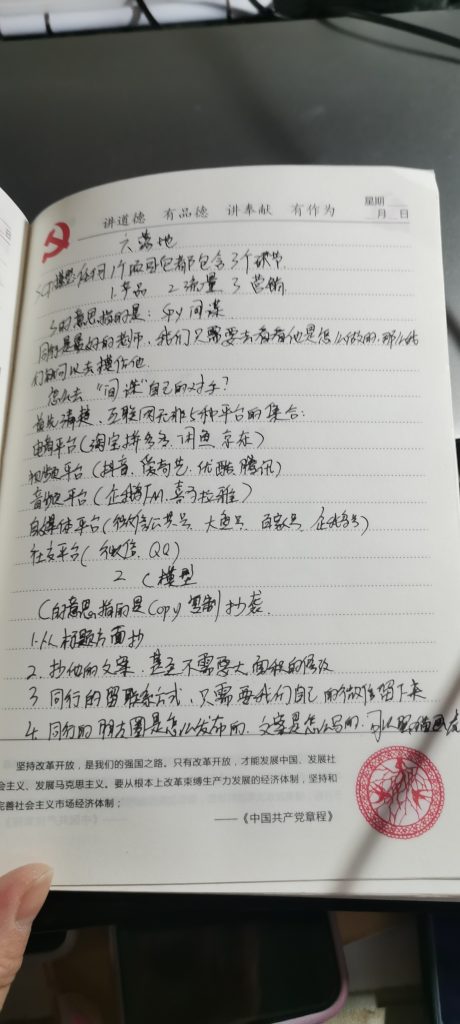 讲道德 有品德 讲奉献 有作为
星期
月 日
落地
模型 任何1个项目包都包含3个环节
1.产品 2.流量 3.营销
S的意思指的是:Spy 间谍
同行是最好的老师,我们只需要去看看他是怎么做的,那么我
们就可以去模仿他.
怎么去“间谍”自己的对手?
首先清楚,互联网无非5种平台的集合:
电商平台(淘宝 拼多多、闲鱼 京东)
视频平台(抖音、优酷 腾讯)
音频平台(企鹅FM、喜马拉雅)
自媒体平台(微信公众号、大鱼号、百家号、企鹅号)
社交平台(微信、QQ)
2 C模型
C的意思指的是Copy 复制 抄袭.
1.从标题方面抄
2.抄他的文案、甚至不需要大面积的修改
3 同行的留联系方式,只需要我们自己的微信留下来
4.同行的朋友圈是怎么发布的,文案是怎么写的,可以
坚持改革开放,是我们的强国之路。只有改革开放,才能发展中国、发展社
会主义、发展马克思主义。要从根本上改革束缚生产力发展的经济体制,坚持和
完善社会主义市场经济体制;
——《中国共产党章程》